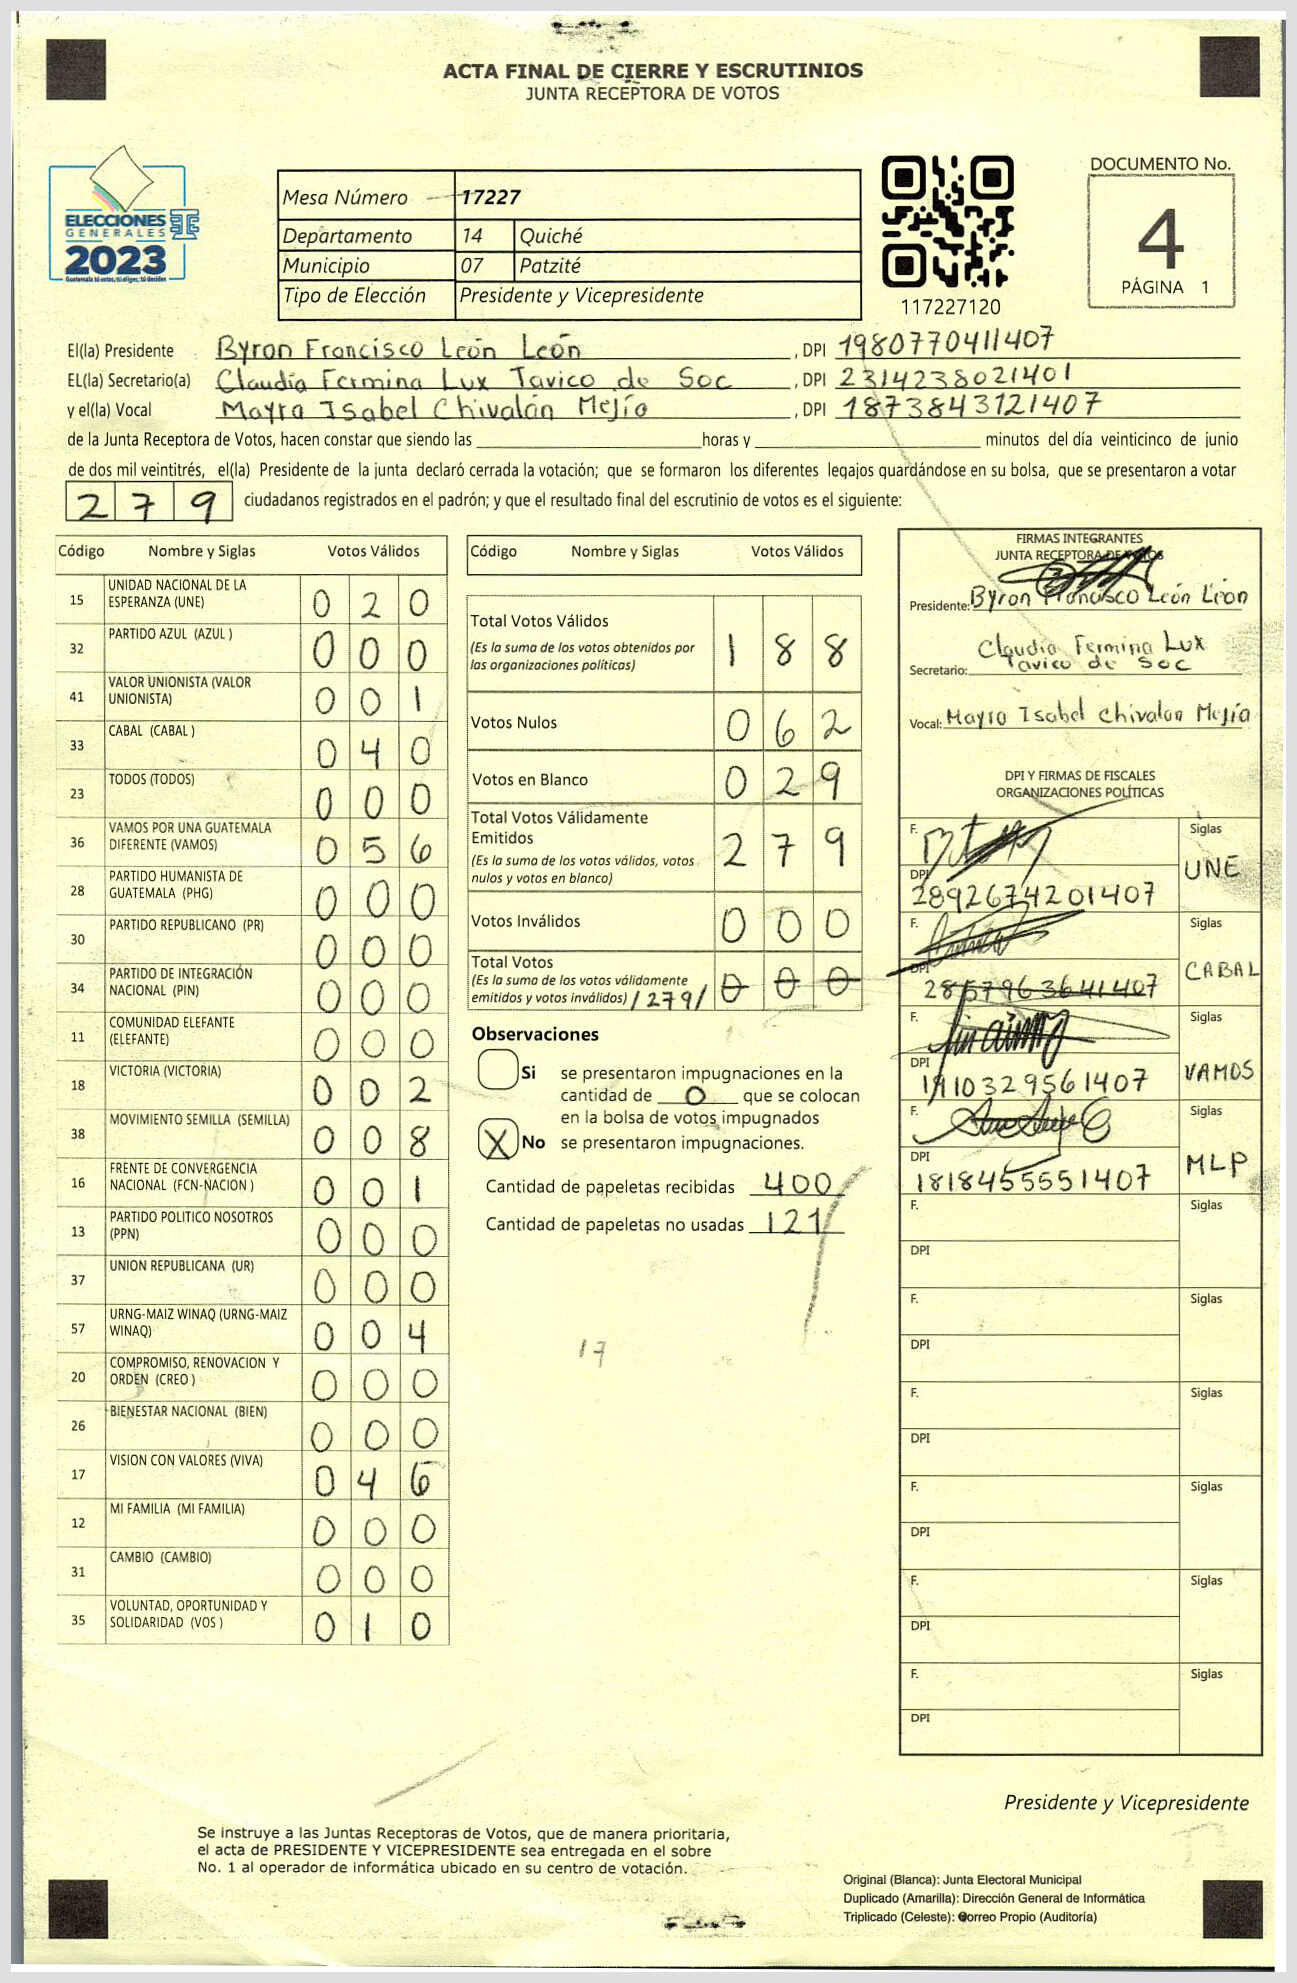 ACTA FINAL DE CIERRE Y ESCRUTINIOS
JUNTA RECEPTORA DE VOTOS
ELECCIONES
GENERALES
2023
Guatemala tú votas, tú eliges, tú decides
Mesa Número 17227
Departamento 14 Quiché
Municipio 07 Patzité
Tipo de Elección Presidente y Vicepresidente
117227120
DOCUMENTO No.
4
PÁGINA 1
El(la) Presidente Byron Francisco León León , DPI 1980770411407
EL(la) Secretario(a) Claudia Fermina Lux Tavico de Soc , DPI 2314238021401
y el(la) Vocal Mayra Isabel Chivalán Mejía , DPI 1873843121407
de la Junta Receptora de Votos, hacen constar que siendo las horas y minutos del día veinticinco de junio
de dos mil veintitrés, el(la) Presidente de la junta declaró cerrada la votación; que se formaron los diferentes legajos guardándose en su bolsa, que se presentaron a votar
279 ciudadanos registrados en el padrón; y que el resultado final del escrutinio de votos es el siguiente:
Código Nombre y Siglas Votos Válidos
15 UNIDAD NACIONAL DE LA ESPERANZA (UNE) 0 2 0
32 PARTIDO AZUL (AZUL ) 0 0 0
41 VALOR UNIONISTA (VALOR UNIONISTA) 0 0 1
33 CABAL (CABAL ) 0 4 0
23 TODOS (TODOS) 0 0 0
36 VAMOS POR UNA GUATEMALA DIFERENTE (VAMOS) 0 5 6
28 PARTIDO HUMANISTA DE GUATEMALA (PHG) 0 0 0
30 PARTIDO REPUBLICANO (PR) 0 0 0
34 PARTIDO DE INTEGRACIÓN NACIONAL (PIN) 0 0 0
11 COMUNIDAD ELEFANTE (ELEFANTE) 0 0 0
18 VICTORIA (VICTORIA) 0 0 2
38 MOVIMIENTO SEMILLA (SEMILLA) 0 0 8
16 FRENTE DE CONVERGENCIA NACIONAL (FCN-NACION ) 0 0 1
13 PARTIDO POLITICO NOSOTROS (PPN) 0 0 0
37 UNION REPUBLICANA (UR) 0 0 0
57 URNG-MAIZ WINAQ (URNG-MAIZ WINAQ) 0 0 4
20 COMPROMISO, RENOVACION Y ORDEN (CREO ) 0 0 0
26 BIENESTAR NACIONAL (BIEN) 0 0 0
17 VISION CON VALORES (VIVA) 0 4 6
12 MI FAMILIA (MI FAMILIA) 0 0 0
31 CAMBIO (CAMBIO) 0 0 0
35 VOLUNTAD, OPORTUNIDAD Y SOLIDARIDAD (VOS ) 0 1 0
Código Nombre y Siglas Votos Válidos
Total Votos Válidos 1 8 8
(Es la suma de los votos obtenidos por
las organizaciones políticas)
Votos Nulos 0 6 2
Votos en Blanco 0 2 9
Total Votos Válidamente
Emitidos 2 7 9
(Es la suma de los votos válidos, votos
nulos y votos en blanco)
Votos Inválidos 0 0 0
Total Votos
(Es la suma de los votos válidamente
emitidos y votos inválidos) /279/ 0 0 0
Observaciones
Si se presentaron impugnaciones en la
cantidad de 0 que se colocan
en la bolsa de votos impugnados
X No se presentaron impugnaciones.
Cantidad de papeletas recibidas 400
Cantidad de papeletas no usadas 121
17
FIRMAS INTEGRANTES
JUNTA RECEPTORA DE VOTOS
Presidente: Byron Francisco León León
Claudia Fermina Lux
Secretario: Tavico de Soc
Vocal: Mayra Isabel Chivalán Mejía
DPI Y FIRMAS DE FISCALES
ORGANIZACIONES POLÍTICAS
F. Siglas
UNE
DPI 2892674201407
F. Siglas
CABAL
DPI 2857963641407
F. Siglas
VAMOS
DPI 1910329561407
F. Siglas
MLP
DPI 1818455551407
F. Siglas
DPI
F. Siglas
DPI
F. Siglas
DPI
F. Siglas
DPI
F. Siglas
DPI
F. Siglas
DPI
Presidente y Vicepresidente
Se instruye a las Juntas Receptoras de Votos, que de manera prioritaria,
el acta de PRESIDENTE Y VICEPRESIDENTE sea entregada en el sobre
No. 1 al operador de informática ubicado en su centro de votación.
Original (Blanca): Junta Electoral Municipal
Duplicado (Amarilla): Dirección General de Informática
Triplicado (Celeste): Correo Propio (Auditoría)